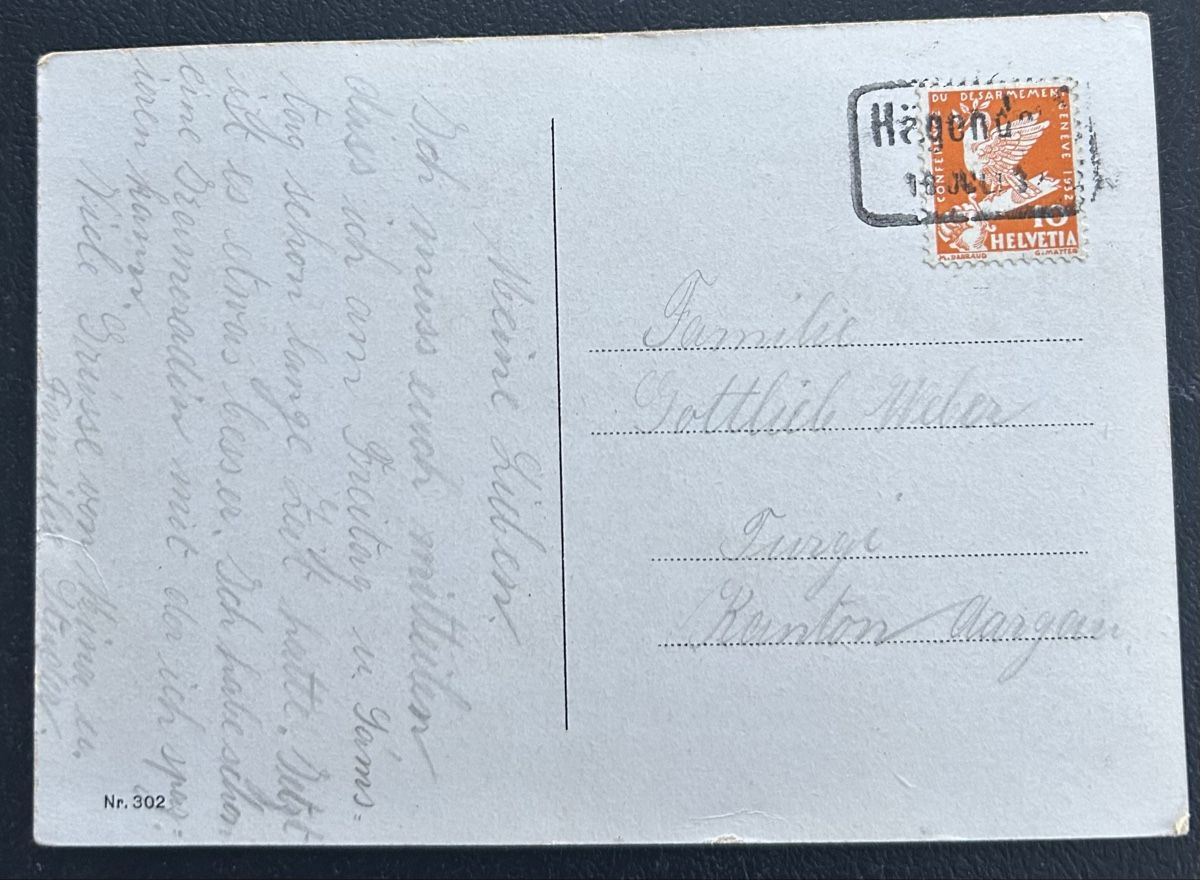 Meine Lieben.
Ich muss euch mitteilen
dass ich am Freitag u. Sams=
tag schon lange Zeit hatte. Jetzt
ist es etwas besser. Ich habe schon
eine Freundin mit der ich spa=
zieren kann.
Viele Grüsse von
Familie Studer.
Hägendo
18 JULI 3
CONFERENCE DU DESARMEMENT GENEVE 1932
10
HELVETIA
M. DARRAUD G. MATTER
Familie
Gottlieb Weber
Turgi
Kanton Aargau
Nr. 302